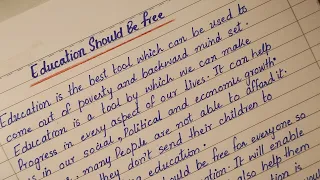 Education Should Be Free
Education is the best tool which can be used to
come out of poverty and backward mind set.
Education is a tool by which we can make
Progress in every aspect of our lives. It can help
in our social, Political and economic growth.
, many People are not able to afford it.
they don't send their children to
education.
should be free for everyone so
It will enable
also help them
is